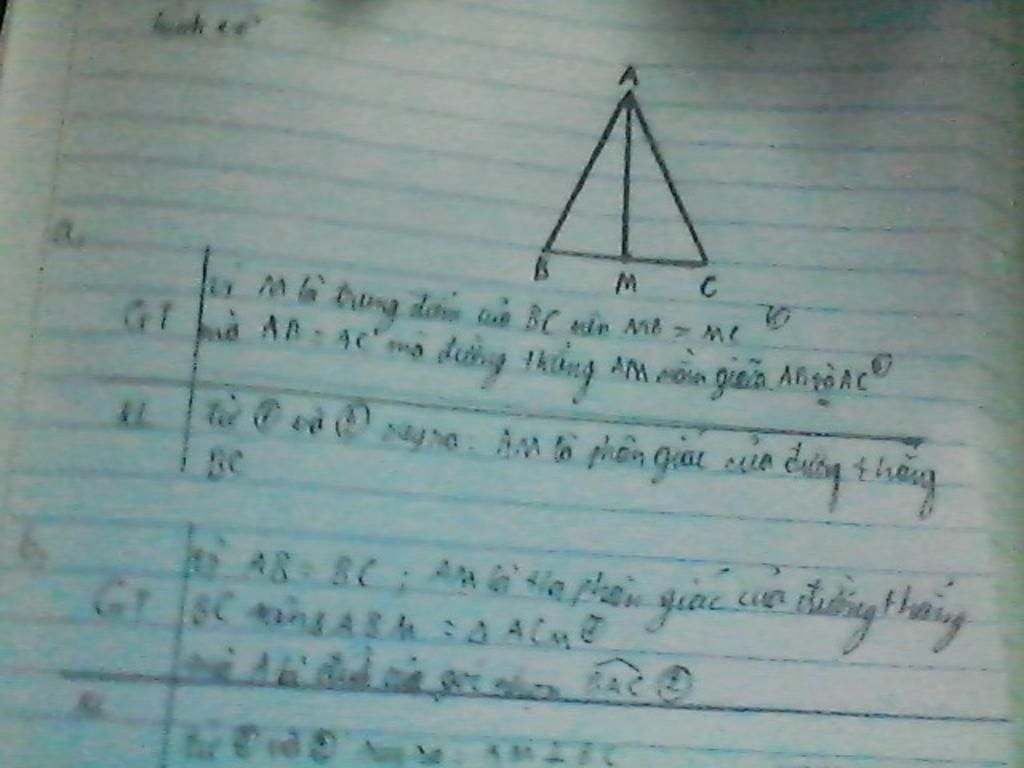 A
B M C
a,
GT
Vì M là trung điểm của BC nên MB = MC ①
mà AB = AC mà đường thẳng AM nằm giữa AB và AC ②
KL
Từ ① và ② suy ra: AM là phân giác của đường thẳng
BC
b,
GT
Vì AB = BC ; AM là tia phân giác của đường thẳng
BC nên ΔABM = ΔACM ①
mà A là đỉnh của góc BAC ②
KL
Từ ① và ② suy ra: AM ⊥ BC